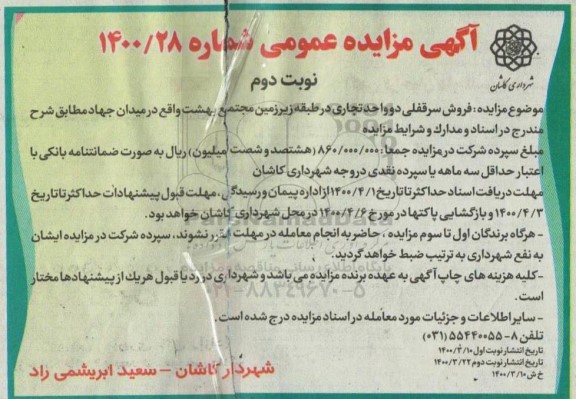 آگهی مزایده عمومی شماره ۱۴۰۰/۲۸
شهرداری کاشان
نوبت دوم
موضوع مزایده : فروش سرقفلی دو واحد تجاری در طبقه زیرزمین مجتمع بهشت واقع در میدان جهاد مطابق شرح
مندرج در اسناد و مدارک و شرایط مزایده
مبلغ سپرده شرکت در مزایده جمعا : ۸۶۰/۰۰۰/۰۰۰ (هشتصد و شصت میلیون) ریال به صورت ضمانتنامه بانکی با
اعتبار حداقل سه ماهه یا سپرده نقدی در وجه شهرداری کاشان
مهلت دریافت اسناد حداکثر تا تاریخ ۱۴۰۰/۴/۱ از اداره پیمان و رسیدگی ، مهلت قبول پیشنهادات حداکثر تا تاریخ
۱۴۰۰/۴/۳ و بازگشایی پاکتها در مورخ ۱۴۰۰/۴/۶ در محل شهرداری کاشان خواهد بود.
- هرگاه برندگان اول تا سوم مزایده ، حاضر به انجام معامله در مهلت مقرر نشوند، سپرده شرکت در مزایده ایشان
به نفع شهرداری به ترتیب ضبط خواهد گردید.
- کلیه هزینه های چاپ آگهی به عهده برنده مزایده می باشد و شهرداری در رد یا قبول هریک از پیشنهادها مختار
است .
- سایر اطلاعات و جزئیات مورد معامله در اسناد مزایده درج شده است .
تلفن ۸-۵۵۴۴۰۰۵۵ (۰۳۱)
تاریخ انتشار نوبت اول ۱۴۰۰/۳/۱۰
تاریخ انتشار نوبت دوم ۱۴۰۰/۳/۲۲
خ ش ۱۴۰۰/۳/۱۰
شهردار کاشان – سعید ابریشمی راد
۰۲۱-۸۸۳۴۹۶۷۰-۵